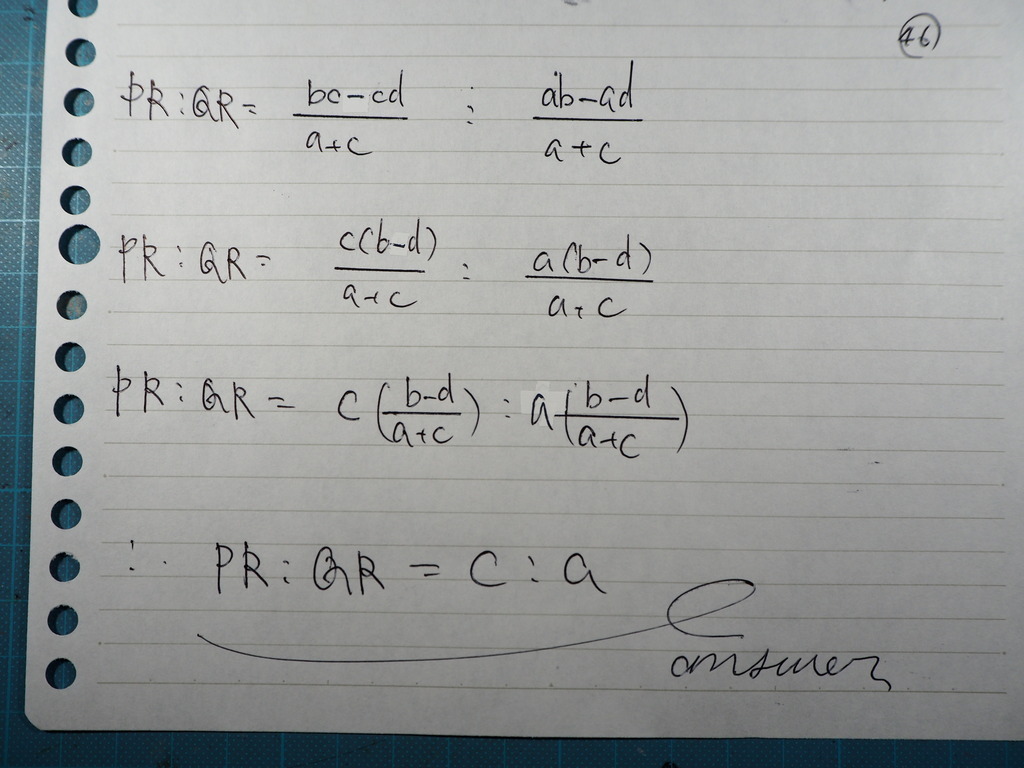 46
PR : QR = (bc-cd)/(a+c) : (ab-ad)/(a+c)
PR : QR = c(b-d)/(a+c) : a(b-d)/(a+c)
PR : QR = c((b-d)/(a+c)) : a((b-d)/(a+c))
∴ PR : QR = c : a
answer